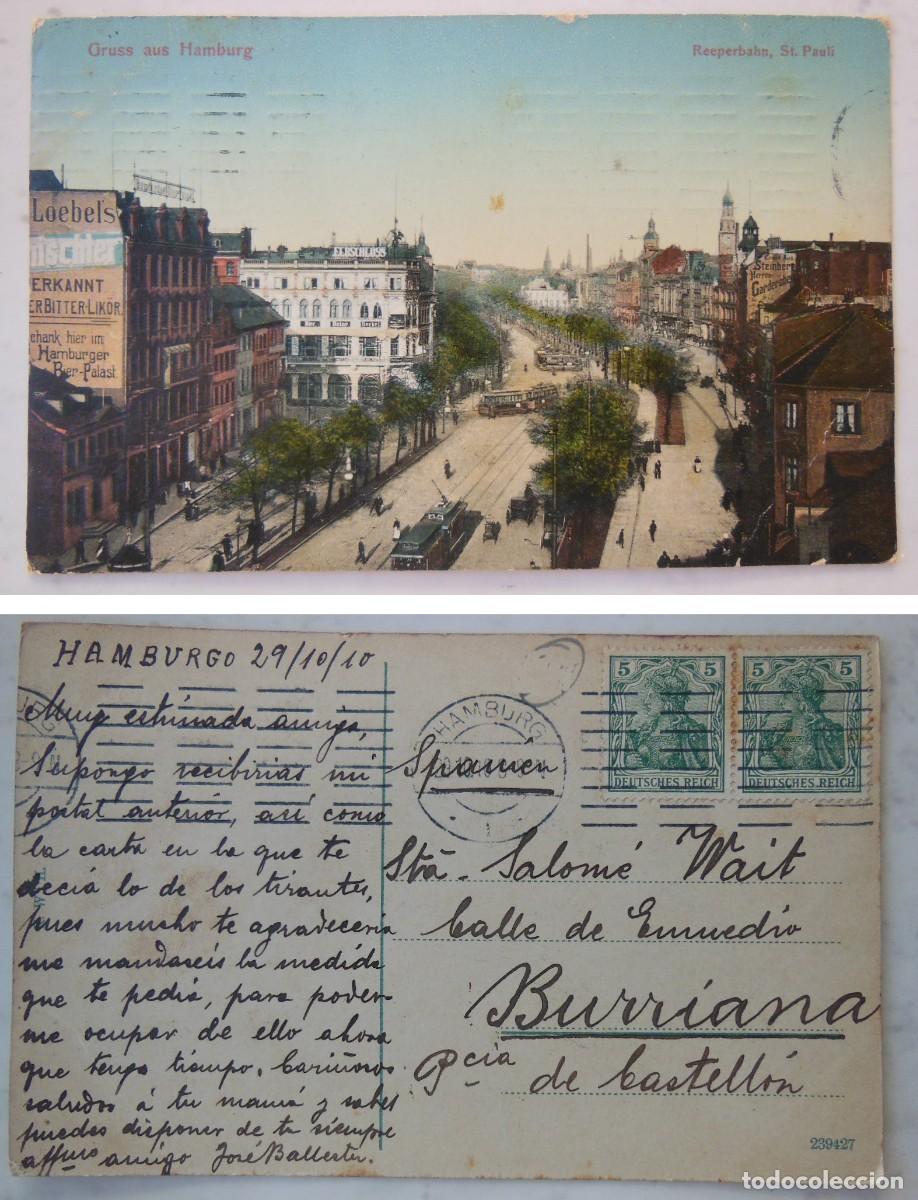 Gruss aus Hamburg
Reeperbahn, St. Pauli
Loebel's
ERKANNT
ER BITTER-LIKÖR.
chank hier im
Hamburger
Bier-Palast.
Steinber
Herren
Garderobe
HAMBURGO 29/10/10
Muy estimada amiga,
Supongo recibirias mi
postal anterior, así como
la carta en la que te
decia lo de los tirantes,
pues mucho te agradeceria
me mandaseis la medida
que te pedia, para poder
me ocupar de ello ahora
que tengo tiempo. Cariñosos
saludos á tu mamá y sabes
puedes disponer de tu siempre
affmo amigo José Ballester.
HAMBURG
1
5 5
DEUTSCHES REICH
5 5
DEUTSCHES REICH
Spanien
Stã. Salomé Wait
Calle de Enmedio
Burriana
Pcia de Castellón
239427
todocoleccion